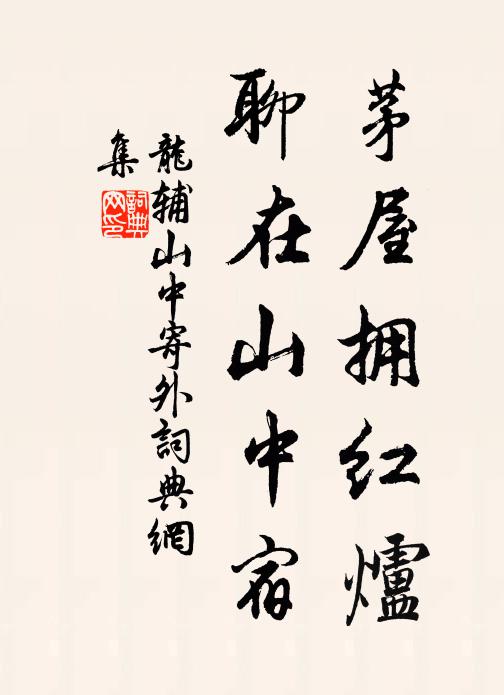 茅屋拥红爐
聊在山中宿
龍辅山中寄外詞典網
集
詞典
网印